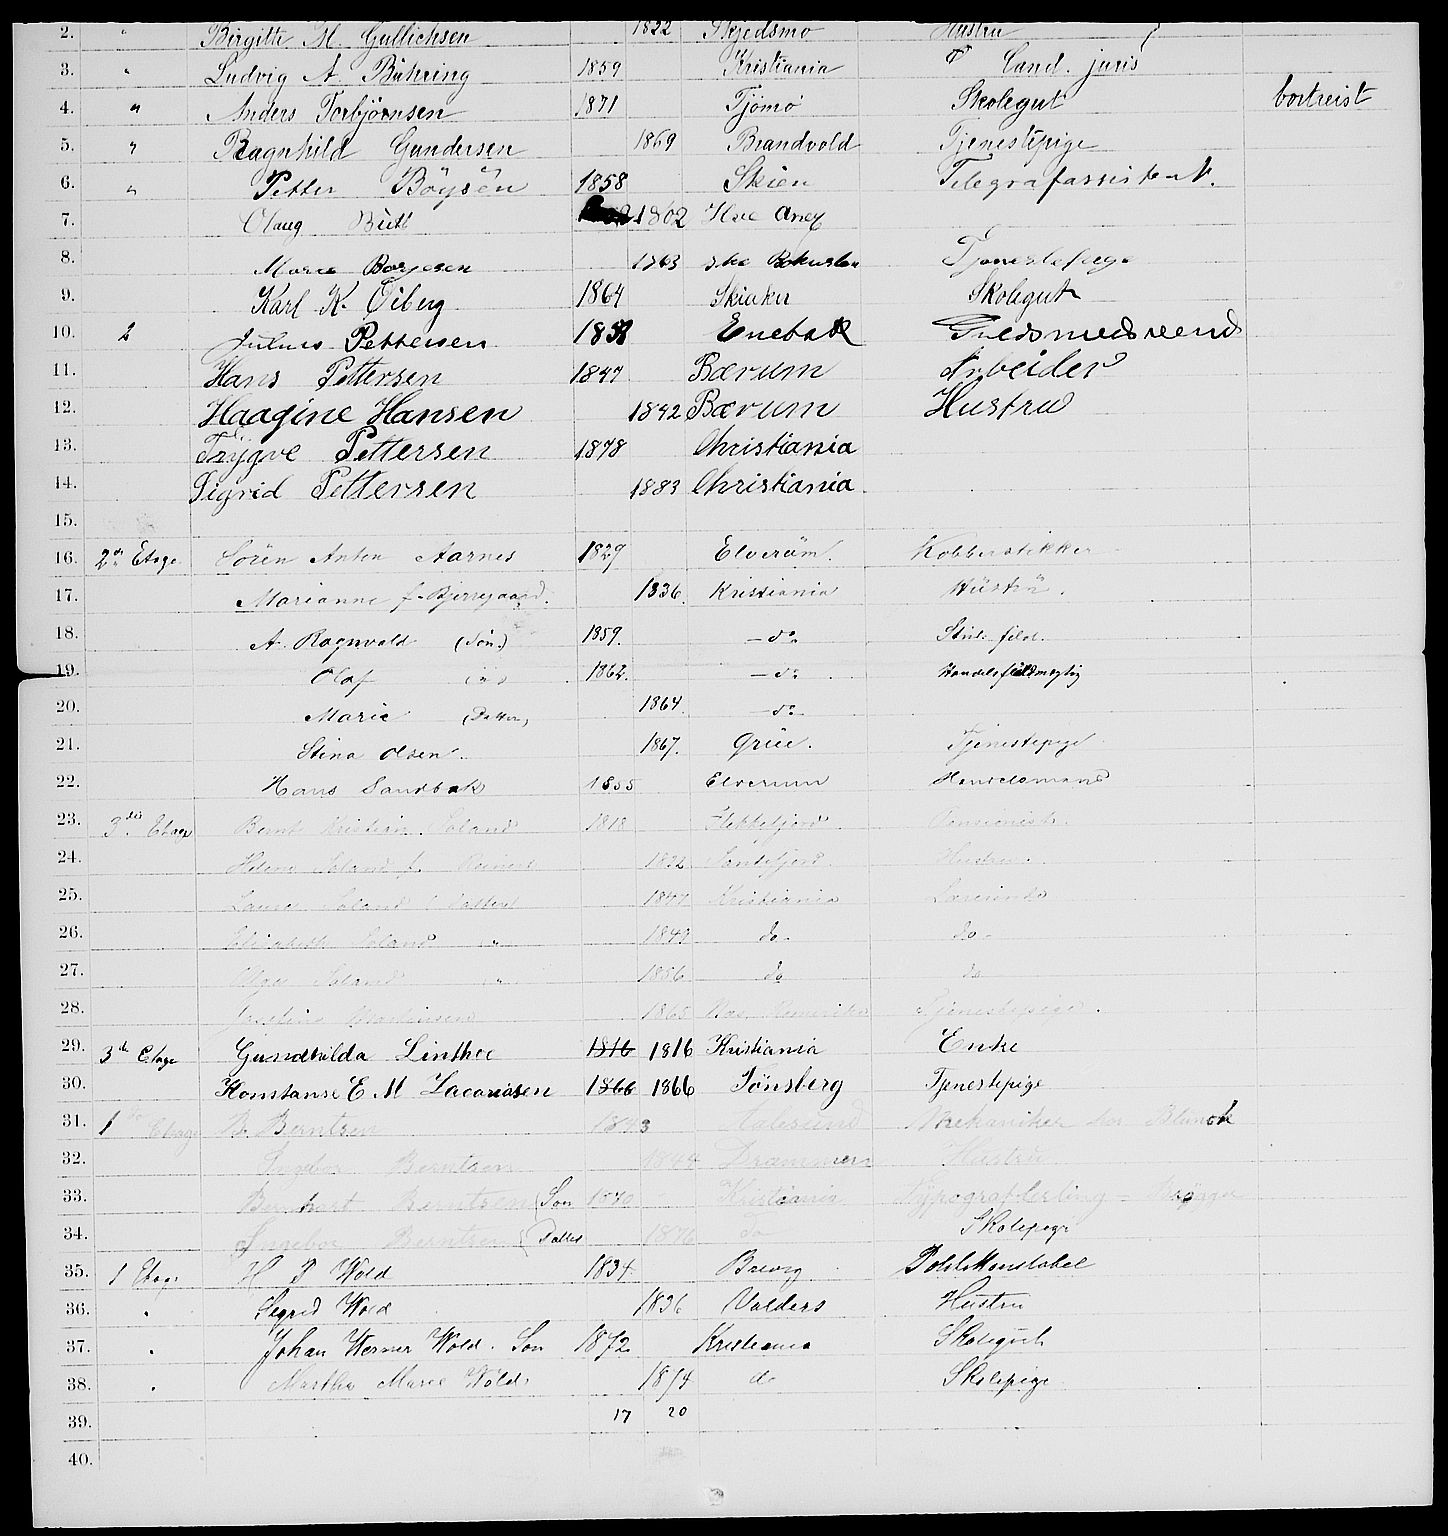 2. " Birgitte M. Gullichsen 1822 Skjedsmo Hustru
3. " Ludvig A. Bühring 1859 Kristiania Cand. juris
4. " Anders Torbjörnsen 1871 Tjömö Skolegut bortreist
5. " Ragnhild Gundersen 1869 Brandvold Tjenestepige
6. " Petter Böysen 1858 Skien Telegrafassistent.
7. Olaug 1862
8. Marie Borgesen 1863 Tjenestepige
9. Karl K. Öiberg 1864 Skiaker Skolegut
10. 2 Julius Pettersen Enebak
11. Hans Pettersen 1847 Bærum Arbeider
12. Haagine Hansen 1842 Bærum Hustru
13. Trÿgve Pettersen 1878 Christiania
14. Sigrid Pettersen 1883 Christiania
15.
16. 2den Etage Sören Anton Aarnes 1829 Elverum Kobberstikker
17. Marianne f. Bjerregaard. 1836. Kristiania Hustru.
18. A. Ragnvald (Sön.) 1859. – do Stud. filol.
19. Olaf 1862. – do Handelsfuldmegtig
20. Marie (Datter) 1864. – do
21. Stina Olsen. 1867. Grue. Tjenestepige
22. Hans Sandbak 1855 Elverum Handelsmand
23. 3die Etage Bernt Kristian Soland 1818 Flekkefjord Pensionist.
24. Helene Soland f. 1822 Sandefjord Hustru.
25. Laura Soland (Datter) 1847 Kristiania Lærerinde
26. Elisabeth Soland " 1849 do. do.
27. Olga Soland " 1856 do do
28. Josefine Martinsen 1865 Tjenestepige.
29. 3de Etage Gundhilda Linthoe 1816 1816 Kristiania Enke
30. Konstanse E. M Zacariasen 1866 1866 Tönsberg Tjenestepige
31. 1ste Etage B. Berntsen 1843 Aalesund Mekaniker hos Blunck
32. Ingebor Berntsen 1844 Drammen Hustru
33. Bernhart Berntsen (Son 1870 Kristiania Typograflerling – Brøgger
34. Ingebor Berntsen (Datter 1876 do Skolepige
35. 1 Etage H P Wold 1834 Brevig Politikonstabel
36. " Segred Wold 1836 Valders Hustru
37. " Johan Werner Wold. Son 1872 Kristiania Skolegut
38. " Martha Marie Wold 1874 do Skolepige
39. 17 20
40.